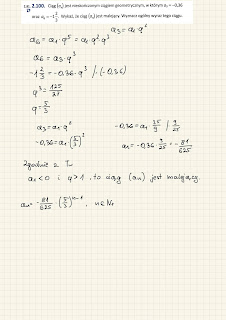 2.100. Ciąg (aₙ) jest nieskończonym ciągiem geometrycznym, w którym a₃ = -0,36
oraz a₆ = -1 2/3. Wykaż, że ciąg (aₙ) jest malejący. Wyznacz ogólny wyraz tego ciągu.
a₃ = a₁·q²
a₆ = a₁·q⁵ = a₁·q²q³
a₆ = a₃·q³
-1 2/3 = -0,36·q³ /:(-0,36)
q³ = 125/27
q = 5/3
a₃ = a₁·q²
-0,36 = a₁·(5/3)²
-0,36 = a₁·25/9 /·9/25
a₁ = -0,36·9/25 = -81/625
Zgodnie z Tw
a₁<0 i q>1, to ciąg (aₙ) jest malejący.
aₙ = -81/625 (5/3)ⁿ⁻¹, n∈N₊